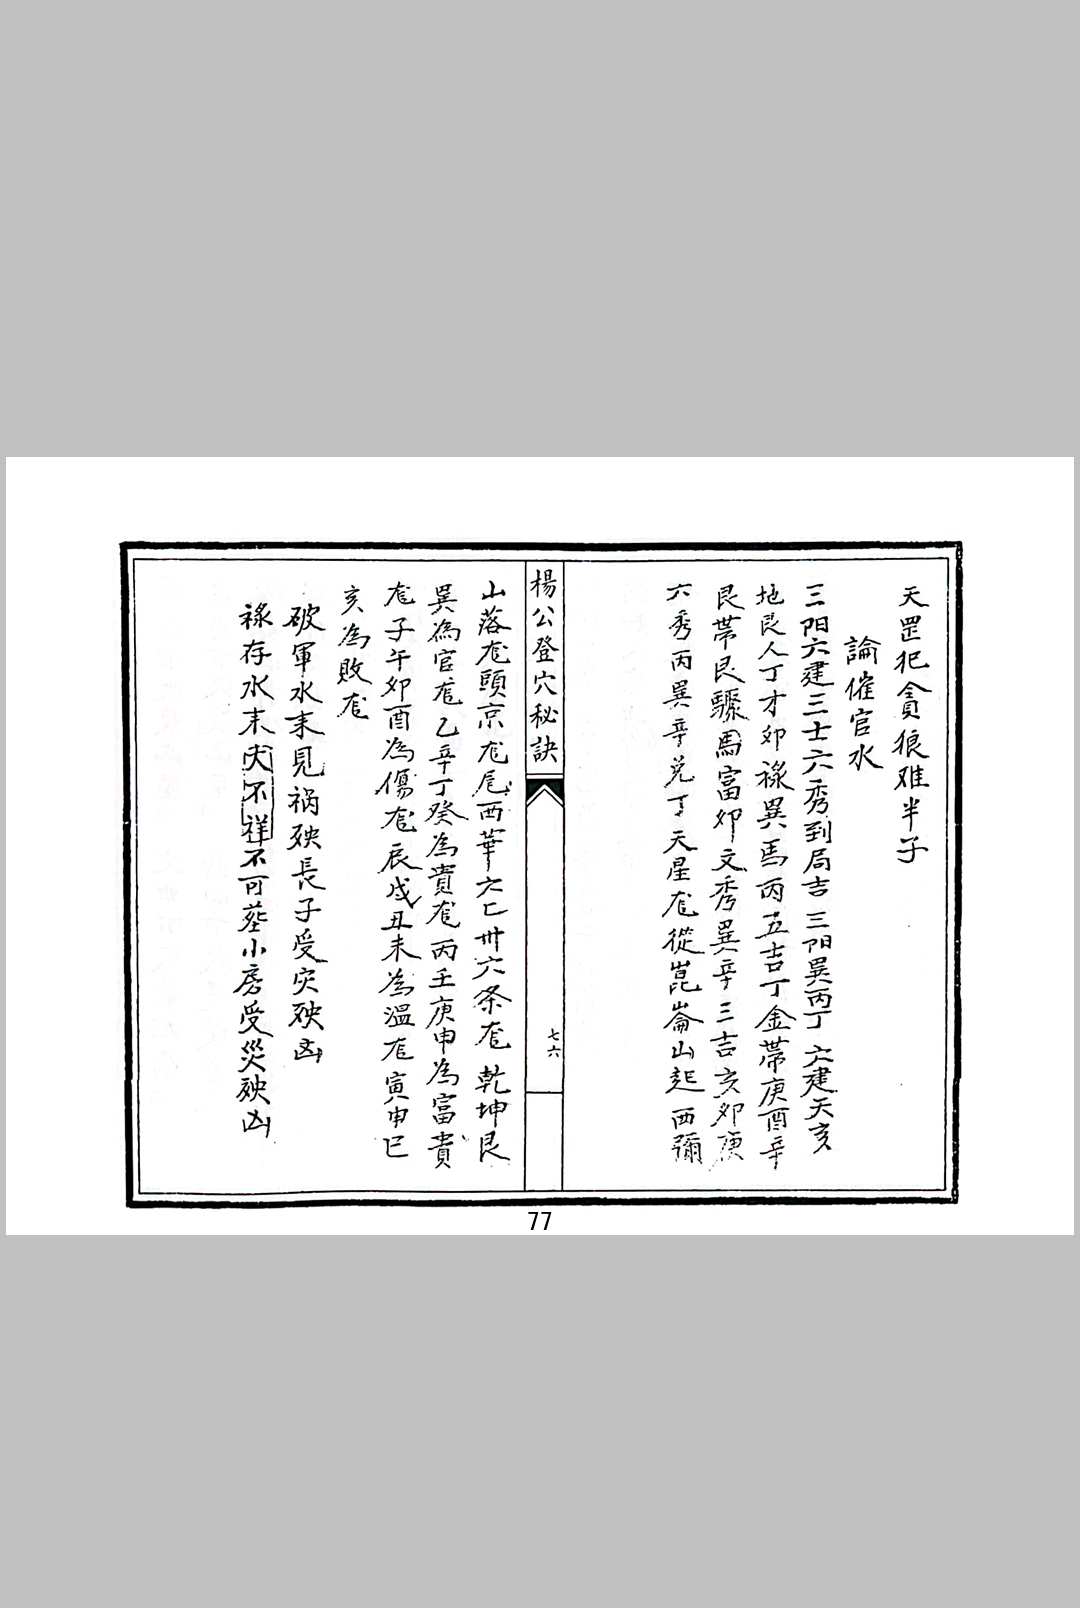 天罡犯貪狼难半子
論催官水
三阳六建三士六秀到局吉 三阳巽丙丁 六建天亥
地艮人丁才卯祿巽馬丙五吉丁金帶庚酉辛
艮帶艮驟馬富卯文秀巽辛三吉亥卯庚
六秀丙巽辛兑丁 天星龙從崑崙山起 西彌
楊公登穴秘訣
七六
山落龙頭京龙尾西華六匕卅六条龙 乾坤艮
巽為官龙乙辛丁癸為貴龙丙壬庚申為富貴
龙子午卯酉為傷龙辰戌丑未為溫龙寅申巳
亥為敗龙
破軍水来見祸殃長子受灾殃凶
祿存水来大不祥不可塟小房受災殃凶
77